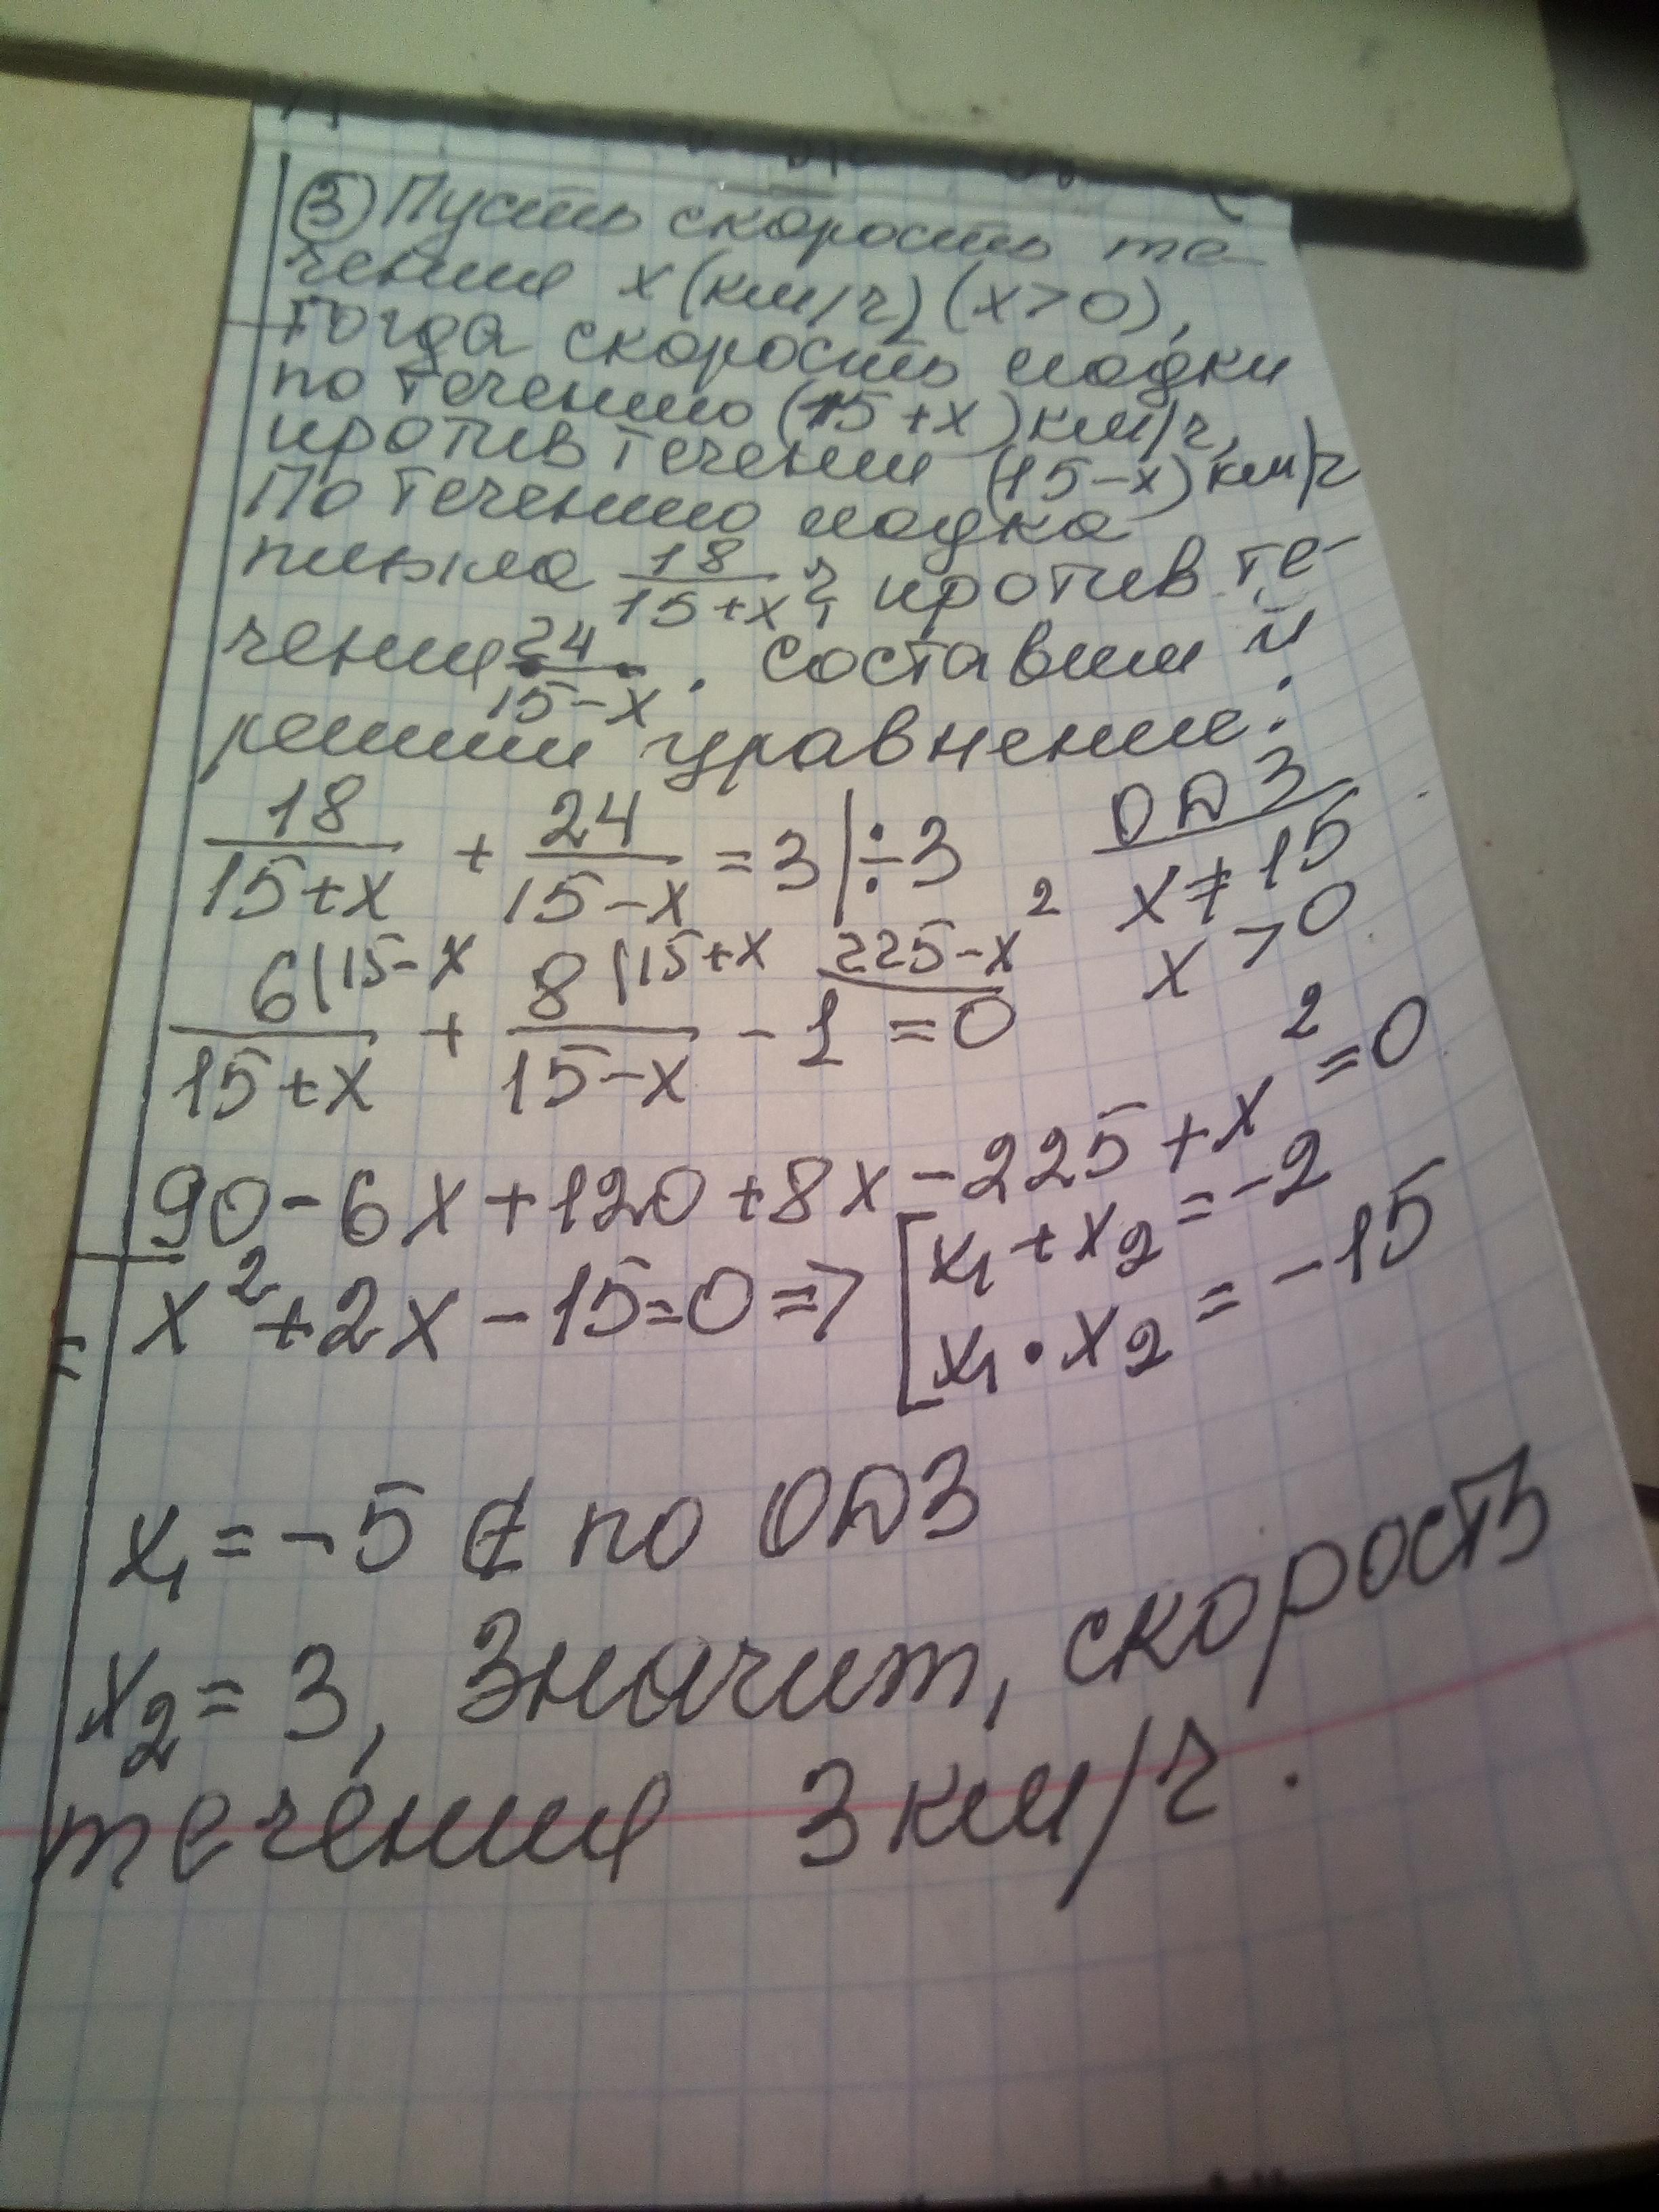 ③ Пусть скорость те-
чения х (км/ч) (х>0),
тогда скорость лодки
по течению (15+х) км/ч,
против течения (15-х) км/ч
По течению лодка
плыла 18/(15+х) ч, против те-
чения 24/(15-х). составим и
решим уравнение:
18/(15+х) + 24/(15-х) = 3 |÷3 ОДЗ
х≠15
х>0
6(15-х/(15+х) + 8(15+х/(15-х) - 1 (225-х² = 0
90-6х+120+8х-225+х²=0
х²+2х-15=0 => [х₁+х₂=-2
х₁·х₂=-15
х₁=-5 ∉ по ОДЗ
х₂=3, Значит, скорость
течения 3 км/ч.